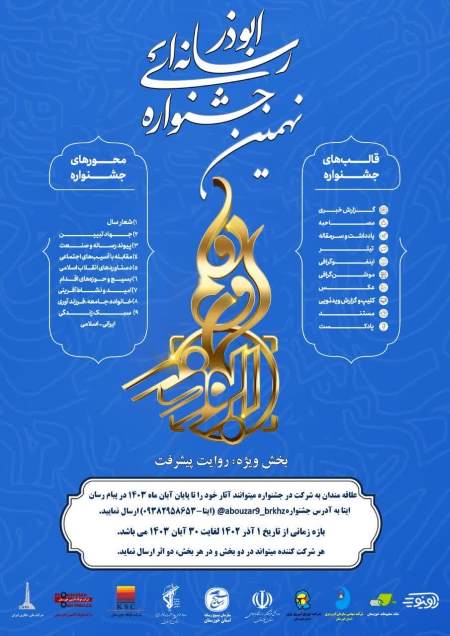 نهمین
جشنواره
رسانه‌ای
ابوذر
قالب‌های
جشنواره
گـزارش خبـری
مصـاحبـه
یادداشت و سرمقاله
تیتر
اینفوگرافی
موشن‌گرافی
عکـس
کلیپ و گزارش ویدئویی
مستند
پادکست
محورهای
جشنواره
۱) شعار سال
۲) جهاد تبیین
۳) پیوند رسانه و صنعت
۴) مقابله با آسیب‌های اجتماعی
۵) دستاوردهای انقلاب اسلامی
۶) بسیج و حوزه‌های اقدام
۷) امید و نشاط‌آفرینی
۸) خانواده، جامعه، فرزندآوری
۹) سبک زندگی
ایرانی-اسلامی
بخش ویژه: روایت پیشرفت
علاقه مندان به شرکت در جشنواره میتوانند آثار خود را تا پایان آبان ماه ۱۴۰۳ در پیام رسان
ایتا به آدرس جشنواره abouzar9_brkhz@ (ایتا-۰۹۳۸۲۹۵۸۶۵۳) ارسال نمایید.
بازه زمانی از تاریخ ۱ آذر ۱۴۰۲ لغایت ۳۰ آبان ۱۴۰۳ می باشد.
هر شرکت کننده میتواند در دو بخش و در هر بخش، دو اثر ارسال نماید.
KSC
سازمان بسیج رسانه
استان خوزستان